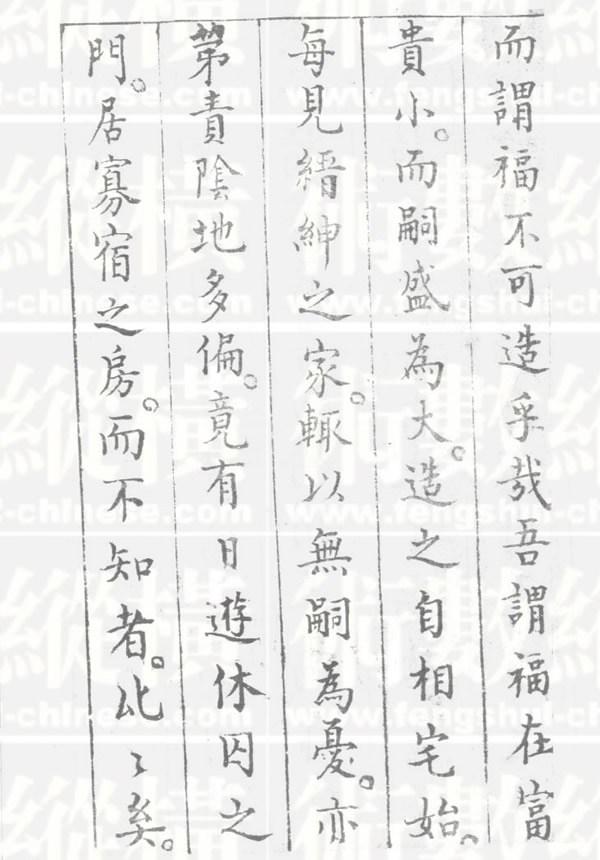 而謂福不可造乎哉吾謂福在富
貴小。而嗣盛為大。造之自相宅始。
每見縉紳之家。輒以無嗣為憂。亦
第責陰地多偏。竟有日遊休囚之
門。居寡宿之房。而不知者。比〻矣。